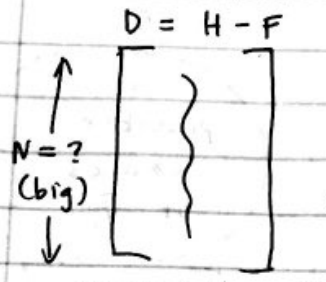 D = H - F
N = ?
(big)